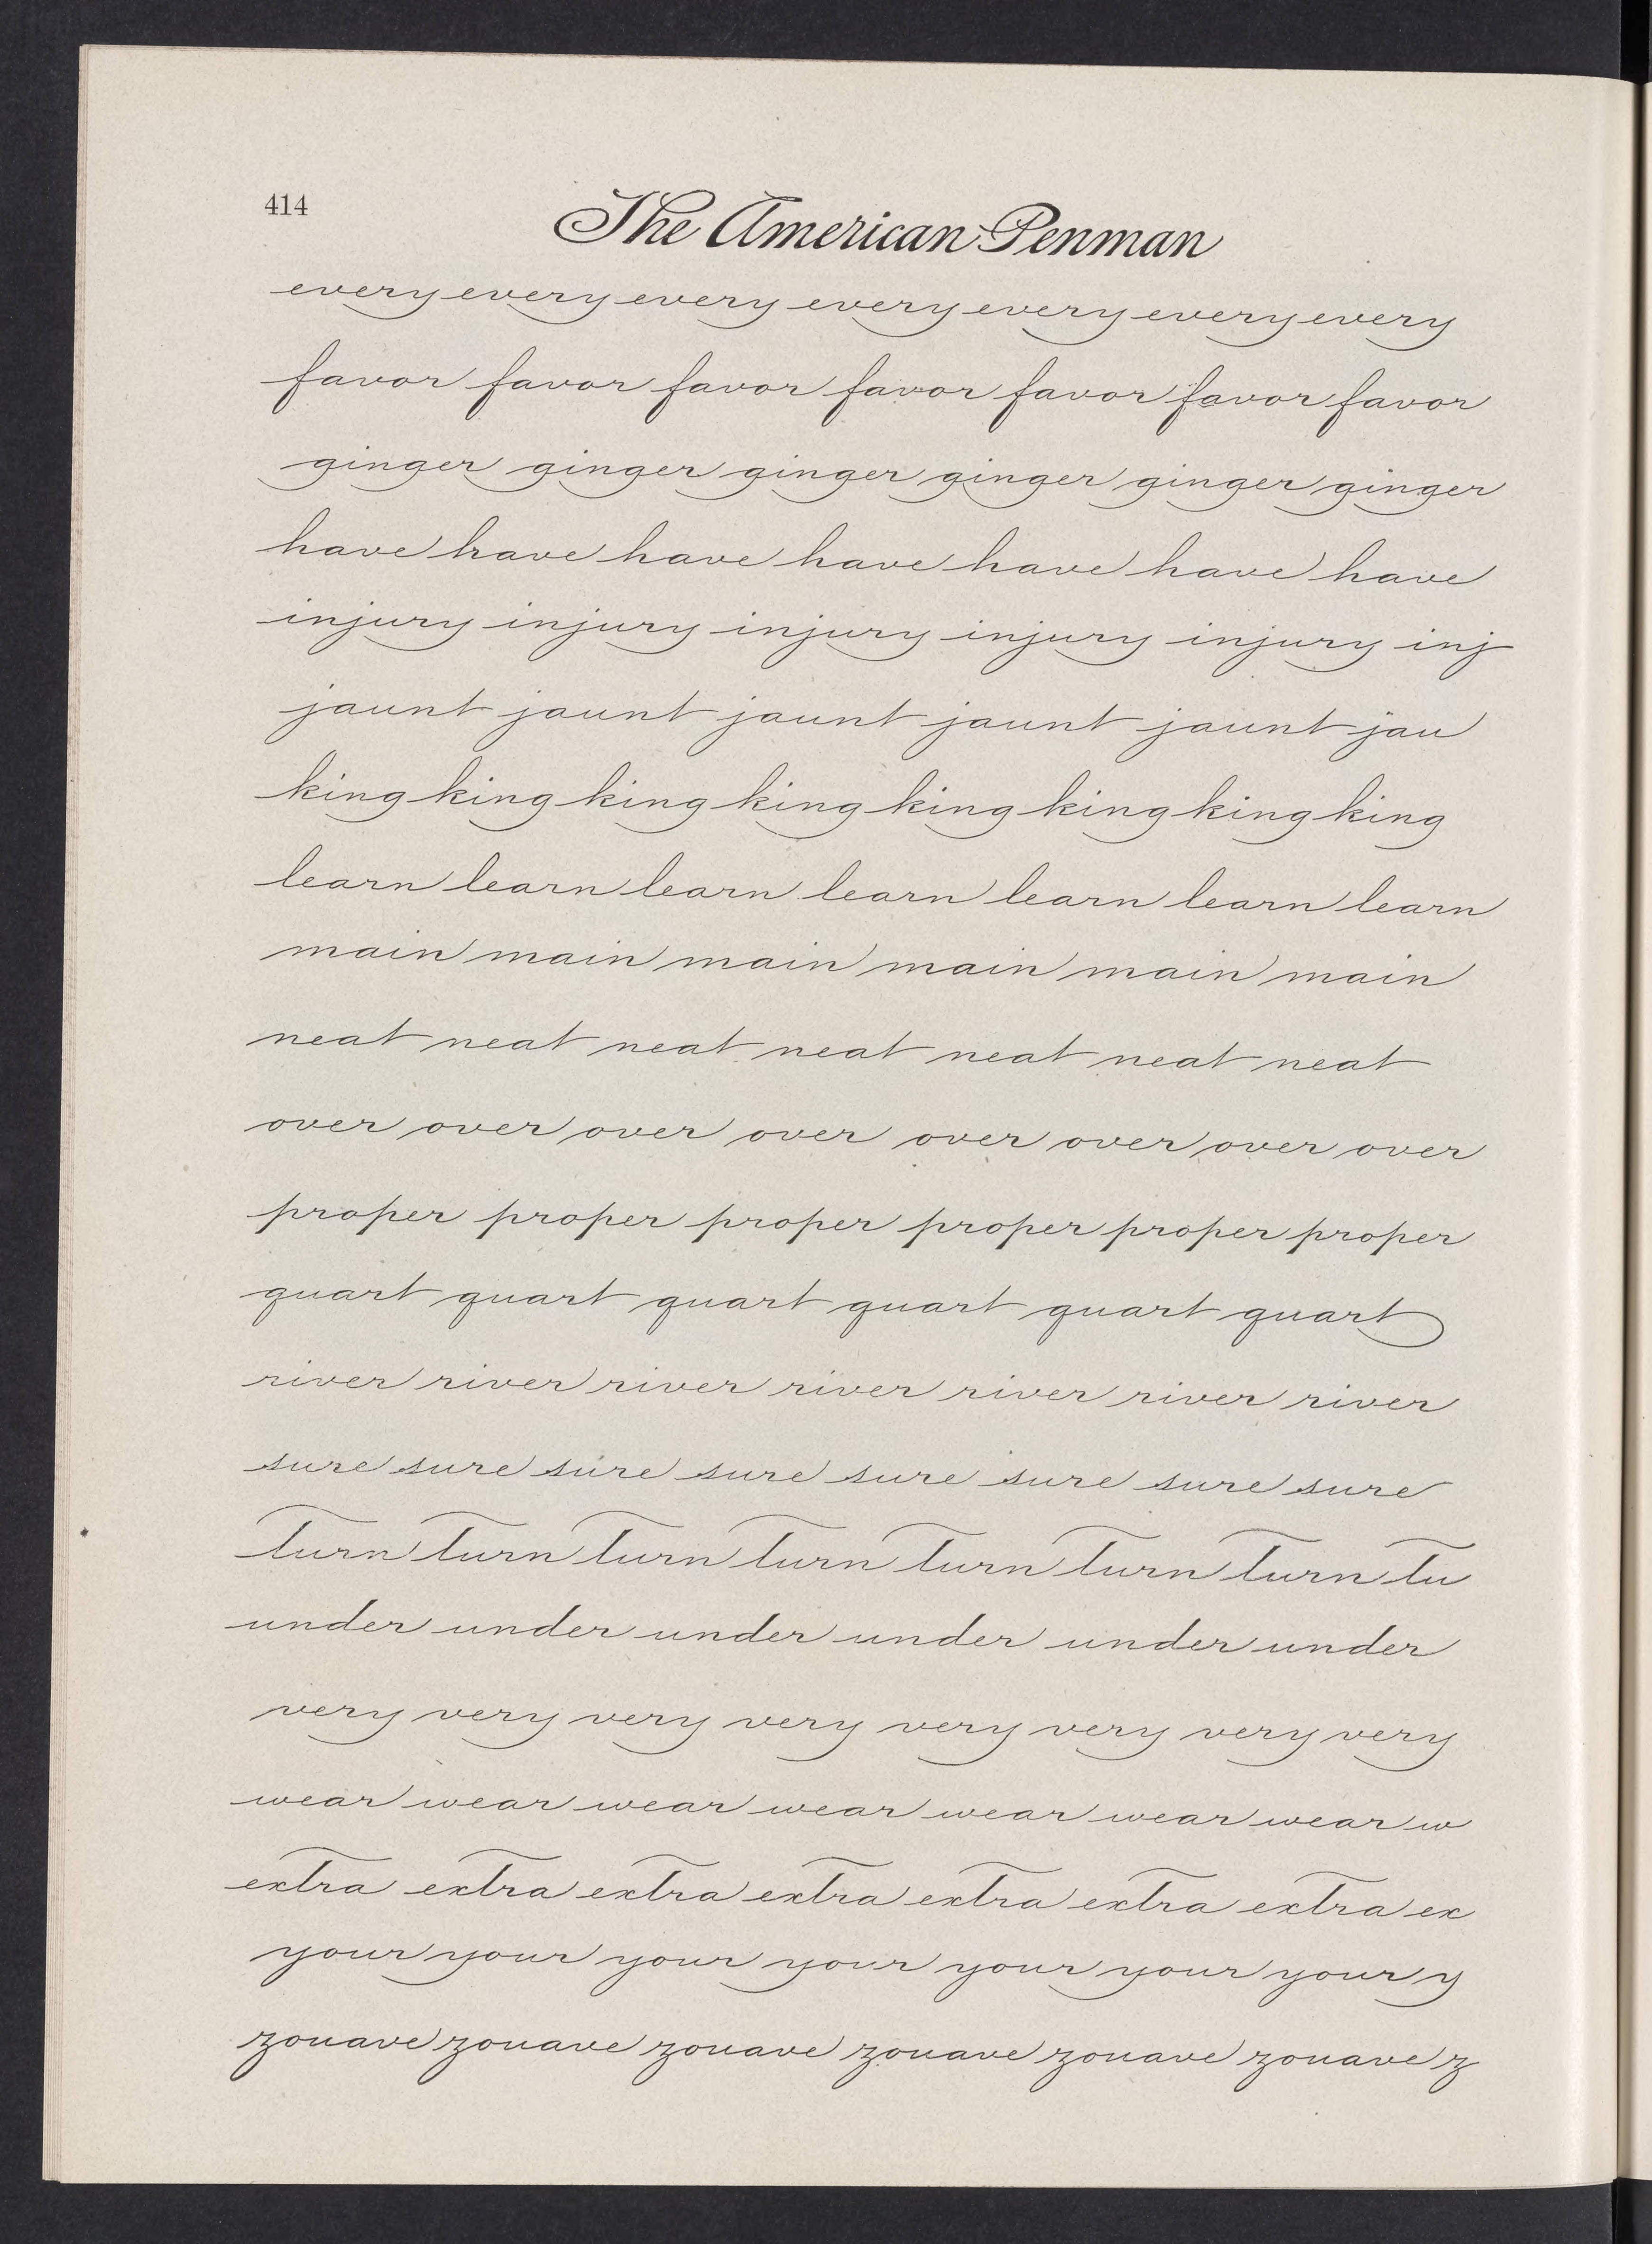 414
The American Penman
every every every every every every every
favor favor favor favor favor favor favor
ginger ginger ginger ginger ginger ginger
have have have have have have have
injury injury injury injury injury inj
jaunt jaunt jaunt jaunt jaunt jau
king king king king king king king king
learn learn learn learn learn learn learn
main main main main main main
neat neat neat neat neat neat neat
over over over over over over over over
proper proper proper proper proper proper
quart quart quart quart quart quart
river river river river river river river
sure sure sure sure sure sure sure sure
turn turn turn turn turn turn turn tu
under under under under under under
very very very very very very very very
wear wear wear wear wear wear wear w
extra extra extra extra extra extra extra ex
your your your your your your your y
zouave zouave zouave zouave zouave zouave z